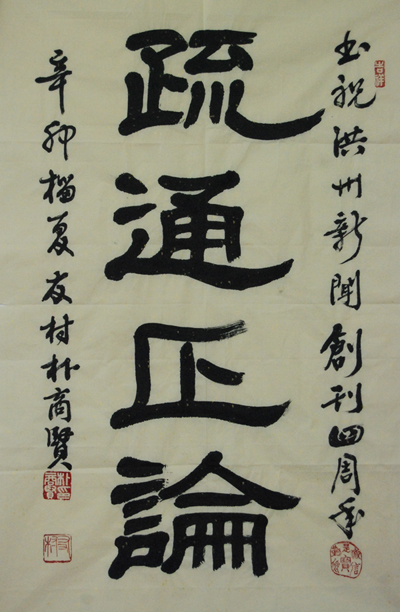 書祝洪州新聞創刊四周年
疏通正論
辛卯榴夏友村朴商賢